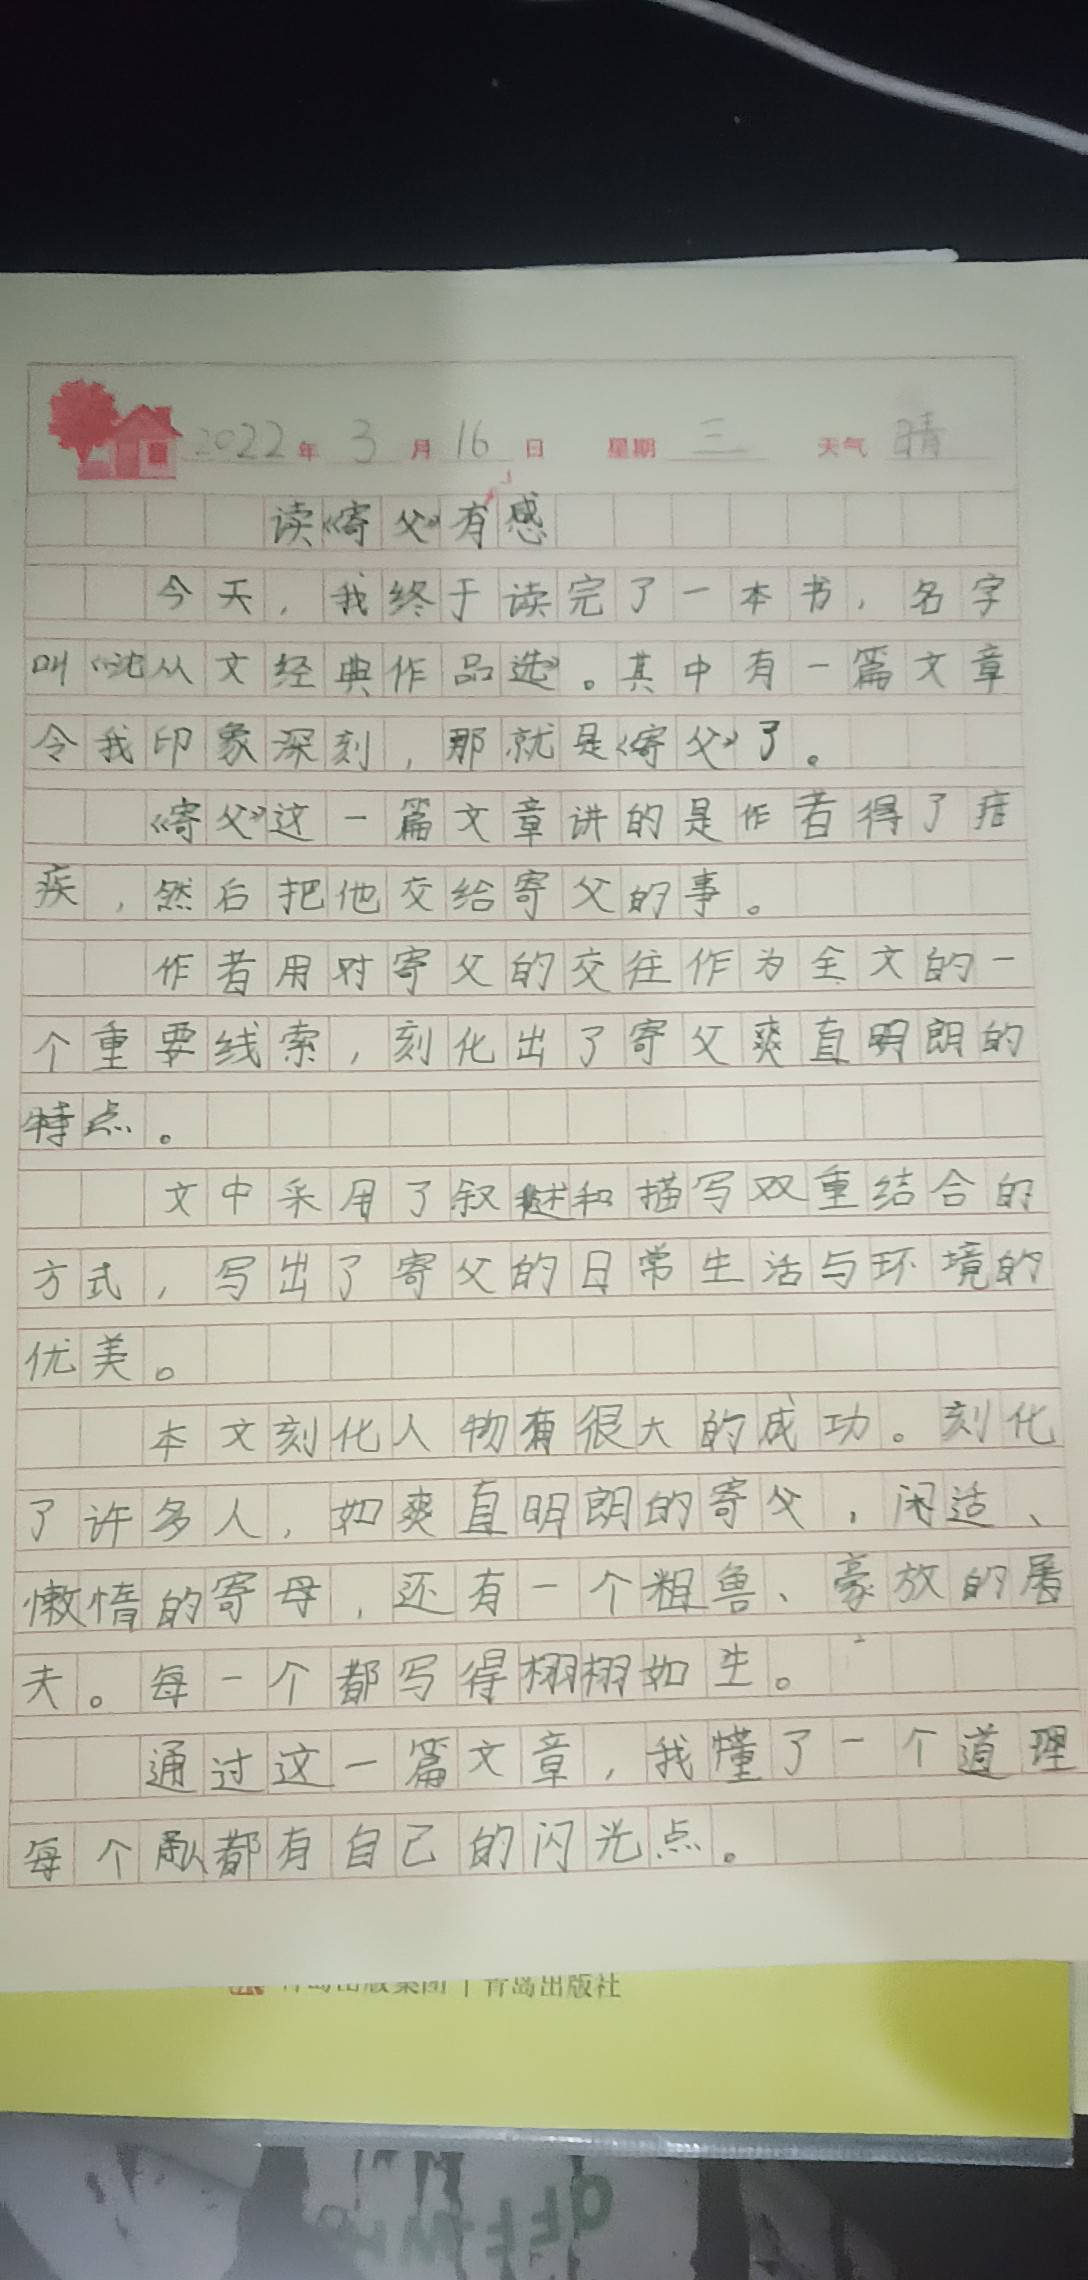 2022年 3月 16日 星期 三 天气 晴
读《寄父》有感
今天，我终于读完了一本书，名字
叫《沈从文经典作品选》。其中有一篇文章
令我印象深刻，那就是《寄父》了。
《寄父》这一篇文章讲的是作者得了
疾，然后把他交给寄父的事。
作者用对寄父的交往作为全文的一
个重要线索，刻化出了寄父爽直明朗的
特点。
文中采用了叙述和描写双重结合的
方式，写出了寄父的日常生活与环境的
优美。
本文刻化人物有很大的成功。刻化
了许多人，如爽直明朗的寄父，闲适、
懒惰的寄母，还有一个粗兽、豪放的屠
夫。每一个都写得栩栩如生。
通过这一篇文章，我懂了一个道理
每个人都有自己的闪光点。
青岛出版集团 | 青岛出版社